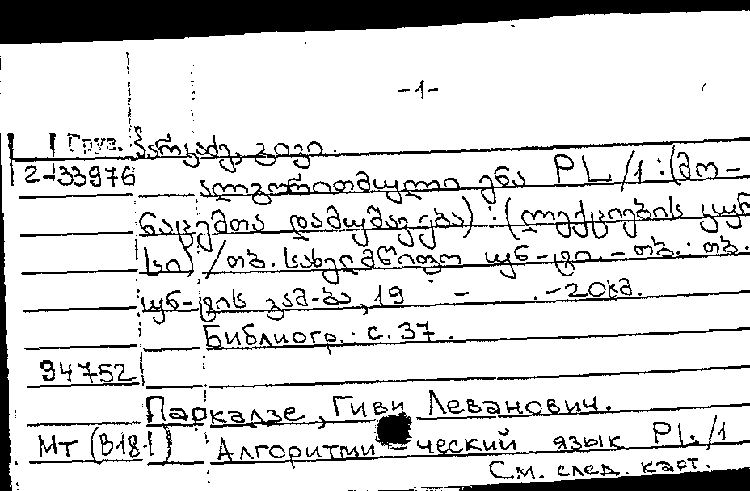 -1-
Груз. პარკაძე, გივი.
2-33976
ალგორითმული ენა PL/1 : (მო-
ნაცემთა დამუშავება) : (ლექციების კურ
სი) / თბ. სახელმწიფო უნ-ტი. - თბ. : თბ.
უნ-ტის გამ-ბა, 19 - . - 20სმ.
Библиогр.: с. 37.
94752
Паркадзе, Гиви Леванович.
МТ (В181) Алгоритми-ческий язык PL/1
См. след. карт.